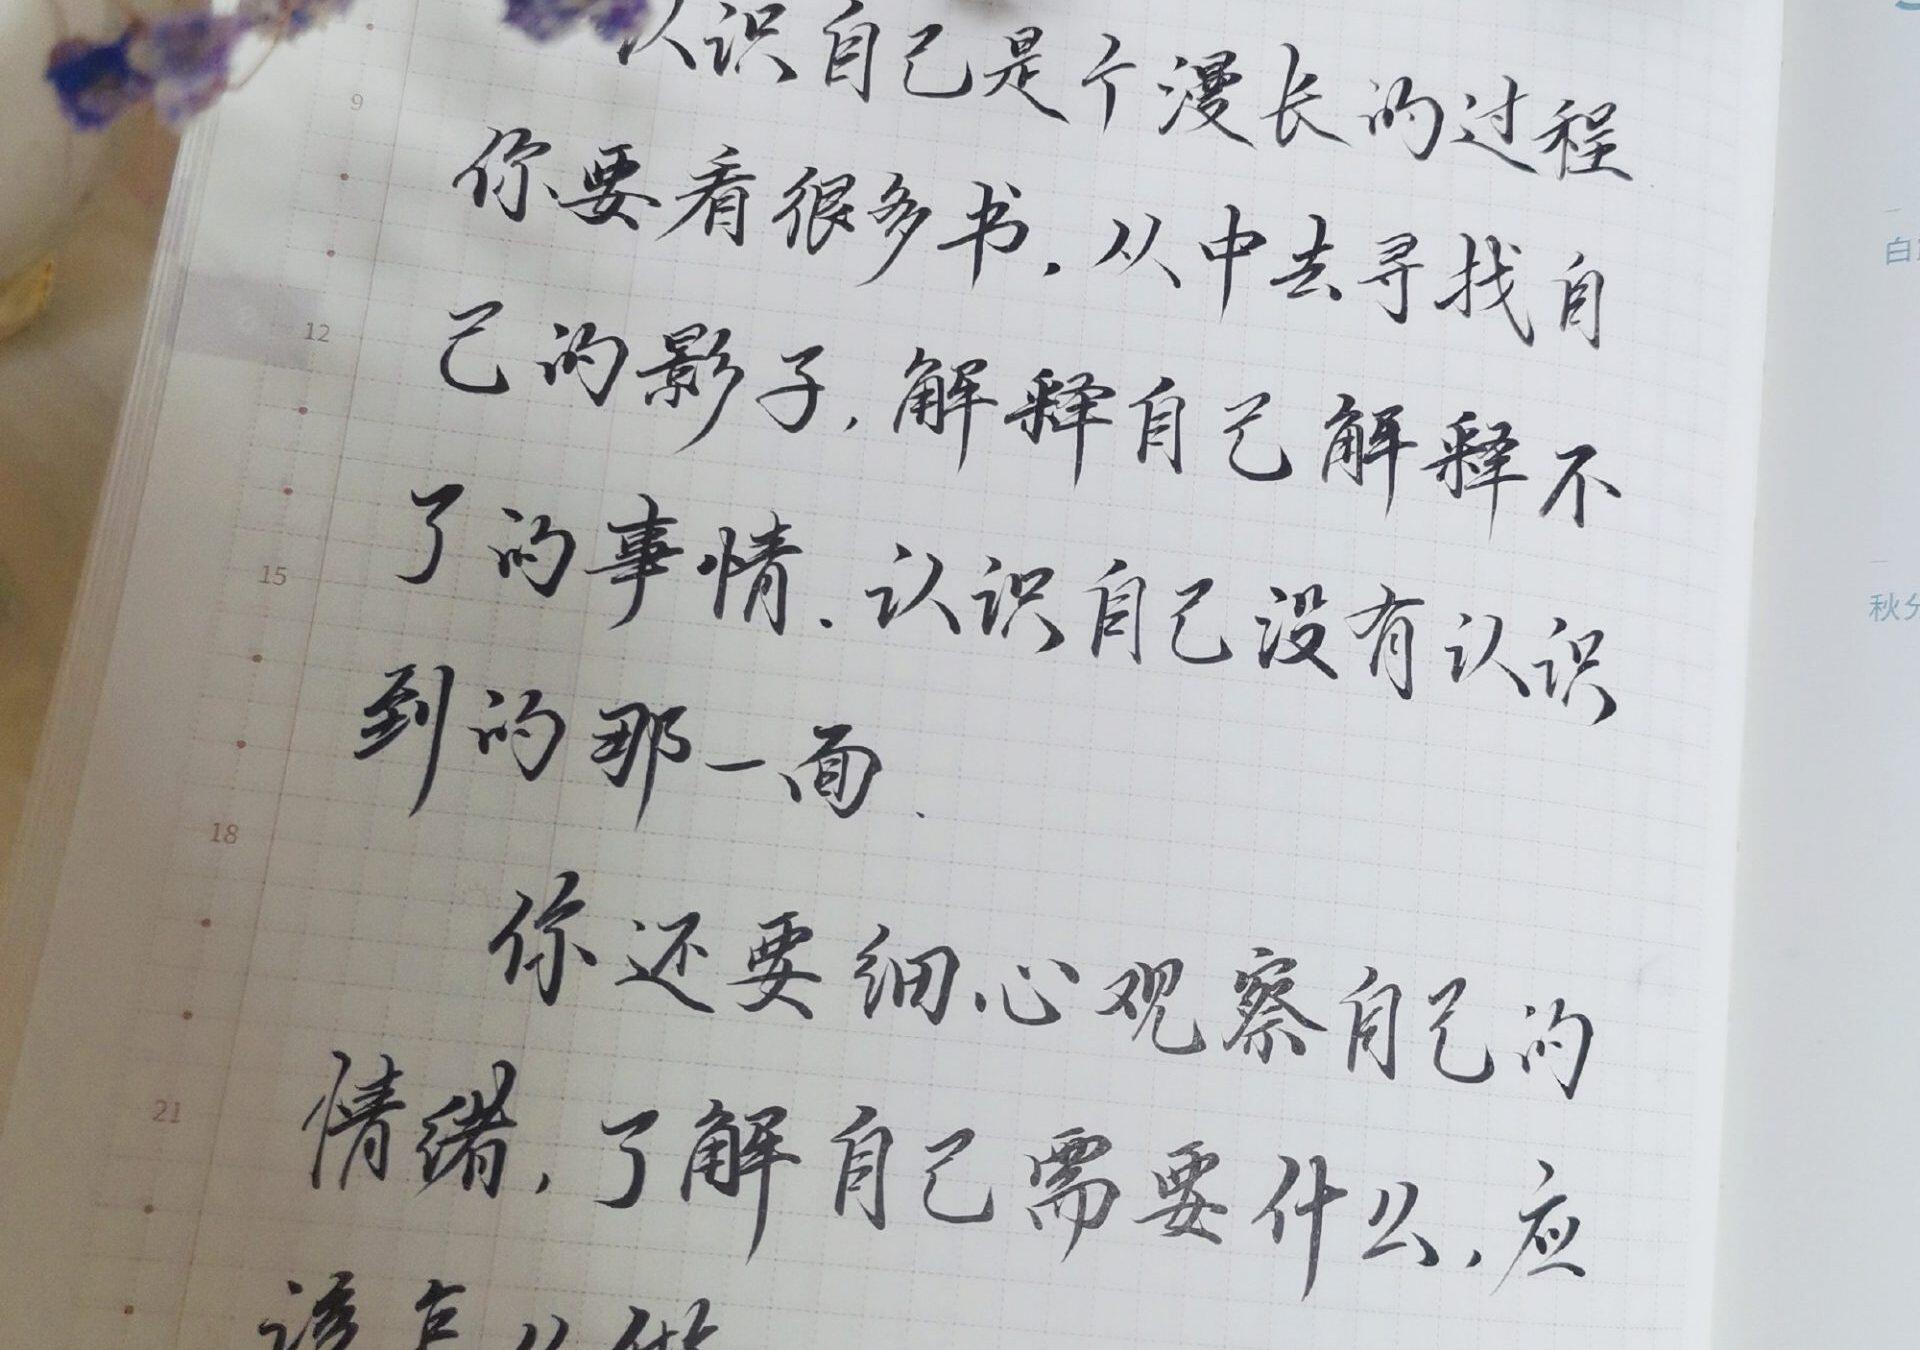 认识自己是个漫长的过程
你要看很多书，从中去寻找自
己的影子，解释自己解释不
了的事情.认识自己没有认识
到的那一面.
你还要细心观察自己的
情绪，了解自己需要什么，应
该怎么做
9
12
15
18
21
白
秋分